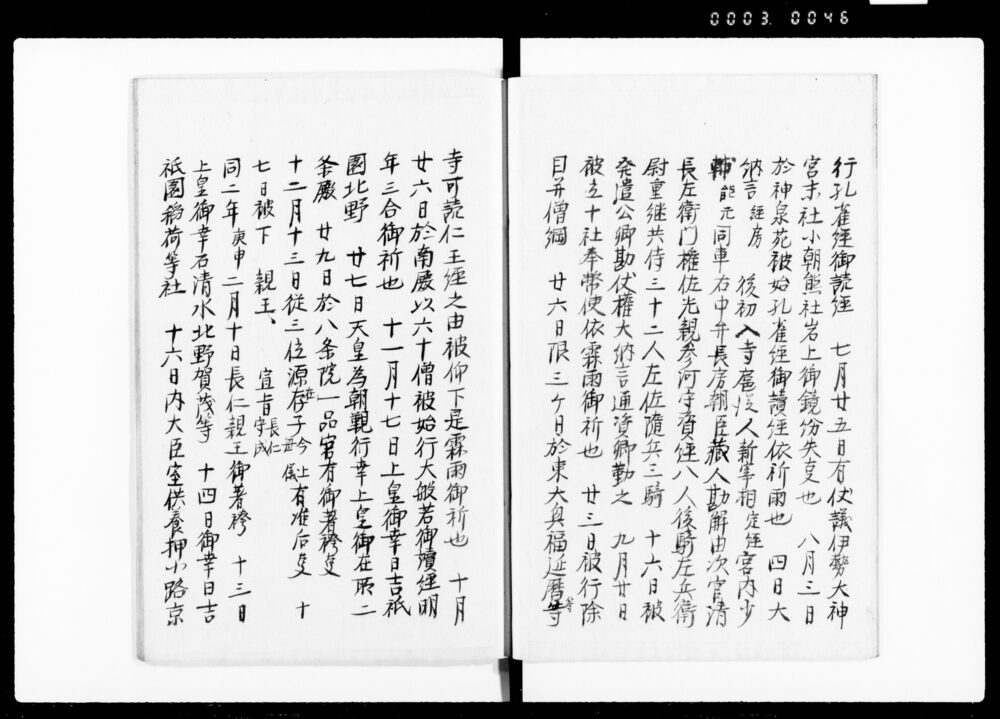 0003 0046
行孔雀経御読経 七月廿五日有仗議伊勢大神
宮末社小朝熊社岩上御鏡紛失支也 八月三日
於神泉苑被始孔雀経御讀経依祈雨也 四日大
納言経房 後初入寺扈従人新宰相定経宮内少
輔能元同車右中弁長房朝臣蔵人勘解由次官清
長左衛門権佐光親参河守資経八人後騎左兵衛
尉重継共侍三十二人左佐随兵三騎 十六日被
発遣公卿勅仗権大納言通資卿勤之 九月廿日
被立十社奉幣使依霖雨御祈也 廿三日被行除
目并僧綱 廿六日限三ケ日於東大興福延暦等
寺可読仁王経之由被仰下是霖雨御祈也 十月
廿六日於南殿以六十僧被始行大般若御讀経明
年三合御祈也 十一月十七日上皇御幸日吉祇
園北野 廿七日天皇為朝覲行幸上皇御在所二
条殿 廿九日於八条院一品宮有御著袴叓
十二月十三日従三位源存子今上有准后叓 十
七日被下 親王、宣旨長仁守成
同二年庚申二月十日長仁親王御著袴 十三日
上皇御幸石清水北野賀茂等 十四日御幸日吉
祇園稲荷等社 十六日内大臣室供養押小路京